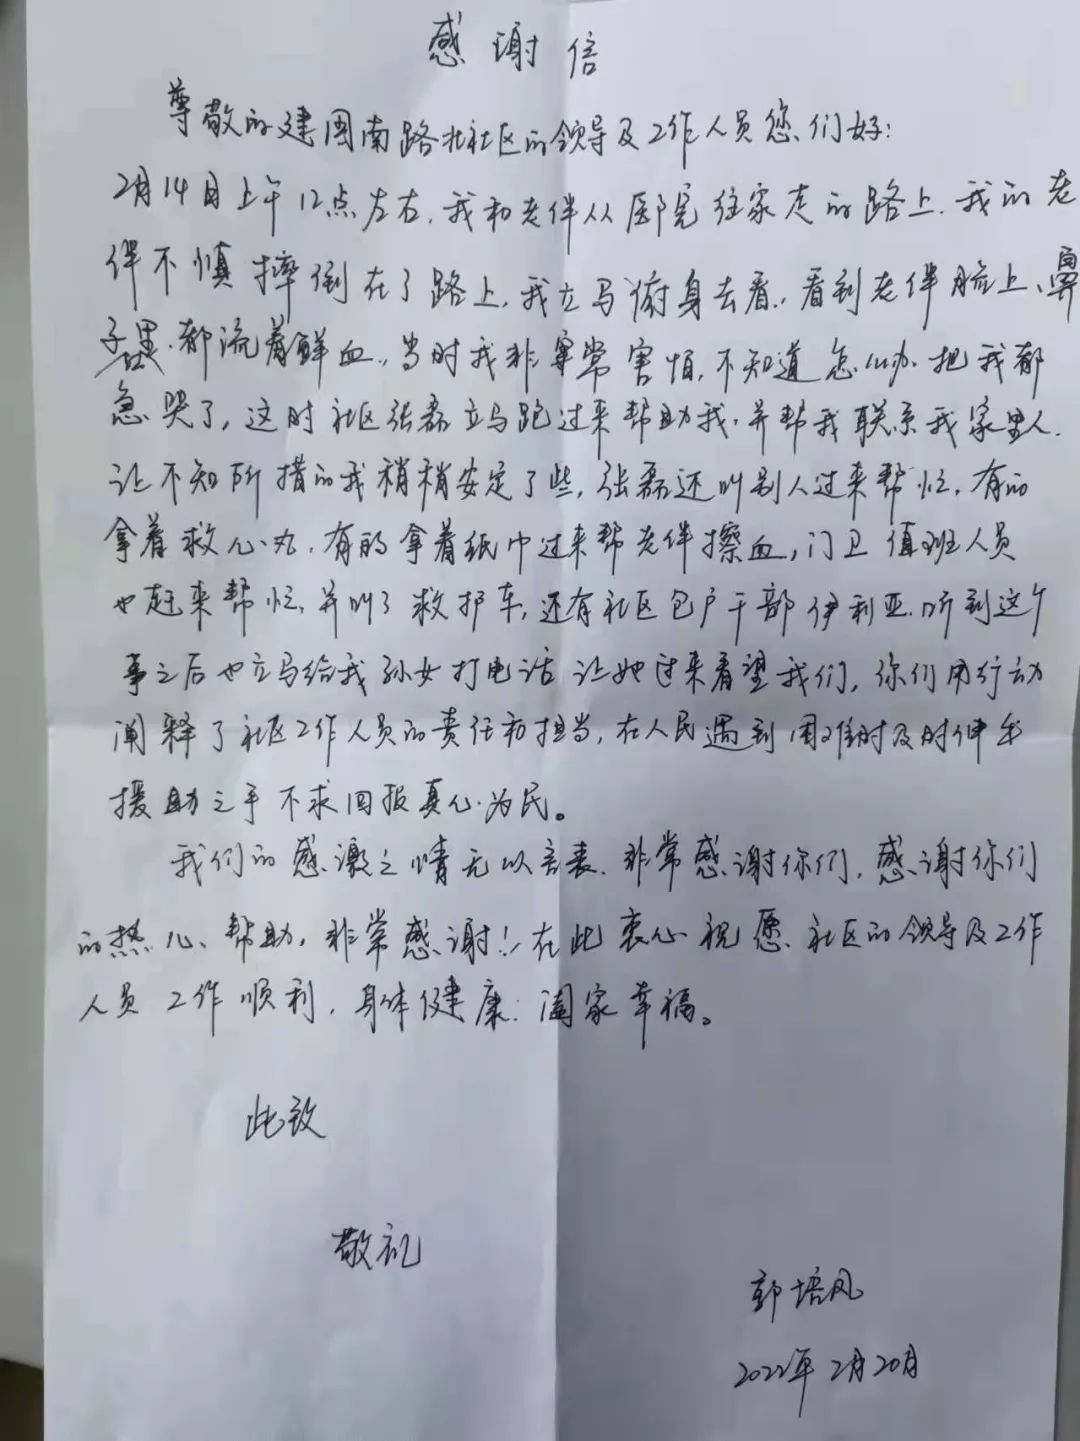 感谢信
尊敬的建国南路北社区的领导及工作人员您们好:
2月14日上午12点左右,我和老伴从医院往家走的路上,我的老
伴不慎摔倒在了路上,我立马俯身去看,看到老伴脸上、鼻
子里都流着鲜血,当时我非常害怕,不知道怎么办把我都
急哭了,这时社区张磊立马跑过来帮助我,并帮我联系我家里人.
让不知所措的我稍稍安定了些,张磊还叫别人过来帮忙,有的
拿着救心丸,有的拿着纸巾过来帮老伴擦血,门卫值班人员
也赶来帮忙,并叫了救护车,还有社区包户干部伊利亚听到这个
事之后也立马给我孙女打电话让她过来看望我们,你们用行动
阐释了社区工作人员的责任和担当,在人民遇到困难时及时伸出
援助之手不求回报真心为民。
我们的感激之情无以言表,非常感谢你们,感谢你们
的热心、帮助,非常感谢!在此衷心祝愿社区的领导及工作
人员工作顺利,身体健康:阖家幸福。
此致
敬礼
郭培风
2022年2月20日